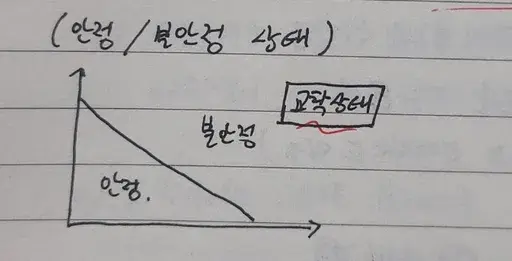 (안정 / 불안정 상태)
불안정
교착상태
안정.